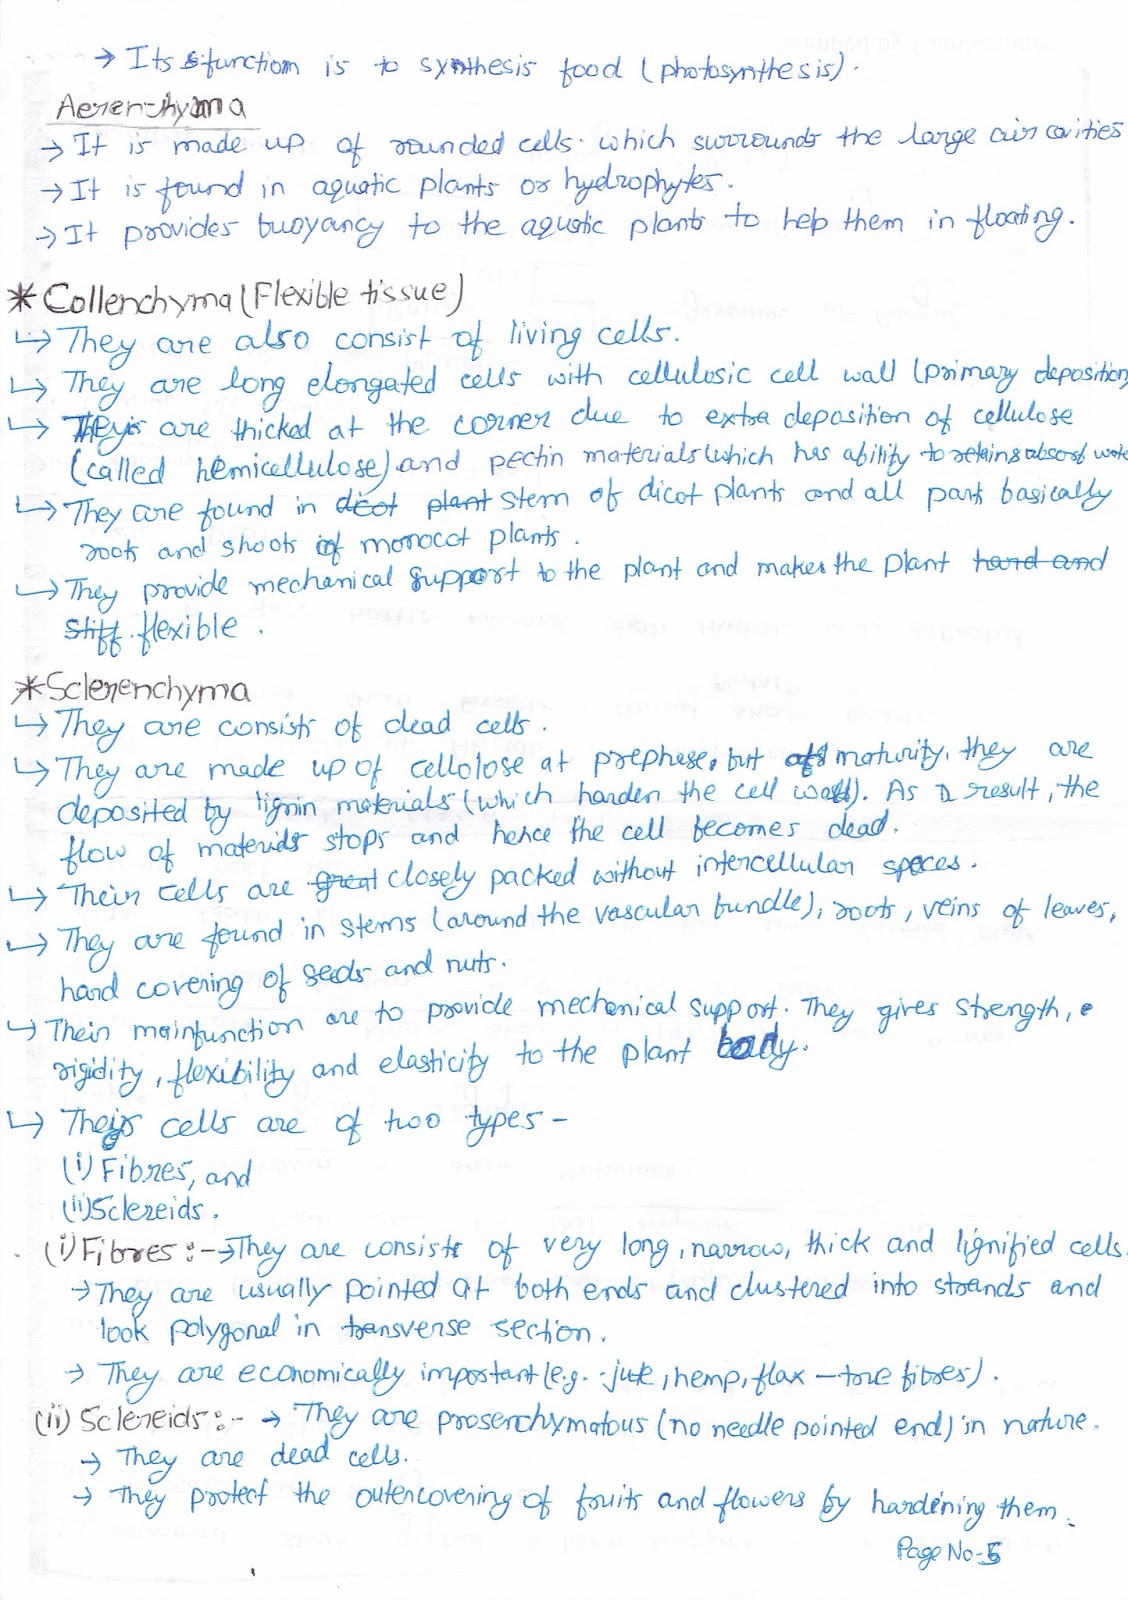 → Its function is to synthesis food (photosynthesis).
Aerenchyma
→ It is made up of rounded cells which surrounds the large air cavities
→ It is found in aquatic plants or hydrophytes.
→ It provides buoyancy to the aquatic plants to help them in floating.
* Collenchyma (Flexible tissue)
↳ They are also consist of living cells.
↳ They are long elongated cells with cellulosic cell wall (primary deposition)
↳ They are thicked at the corner due to extra deposition of cellulose
(called hemicellulose) and pectin materials (which has ability to retains absorb water
↳ They are found in dicot plant stem of dicot plants and all part basically
roots and shoots of monocot plants.
↳ They provide mechanical support to the plant and makes the plant hard and
stiff. flexible.
* Sclerenchyma
↳ They are consists of dead cells.
↳ They are made up of cellolose at prephase, but at maturity, they are
deposited by lignin materials (which harden the cell wall). As a result, the
flow of materials stops and hence the cell becomes dead.
↳ Their cells are great closely packed without intercellular speces.
↳ They are found in stems (around the vascular bundle), roots, veins of leaves,
hard covering of seeds and nuts.
↳ Their mainfunction are to provide mechanical support. They gives strength,
rigidity, flexibility and elasticity to the plant body.
↳ Their cells are of two types -
(i) Fibres, and
(ii) Sclereids.
(i) Fibres :- → They are consists of very long, narrow, thick and lignified cells.
→ They are usually pointed at both ends and clustered into strands and
look polygonal in transverse section.
→ They are economically important (e.g. - jute, hemp, flax - true fibres).
(ii) Sclereids :- → They are prosenchymatous (no needle pointed end) in nature.
→ They are dead cells.
→ They protect the outercovering of fruits and flowers by hardening them.
Page No-5